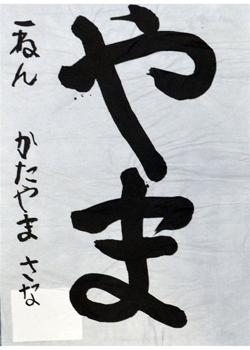 やま
一ねん かたやま さな